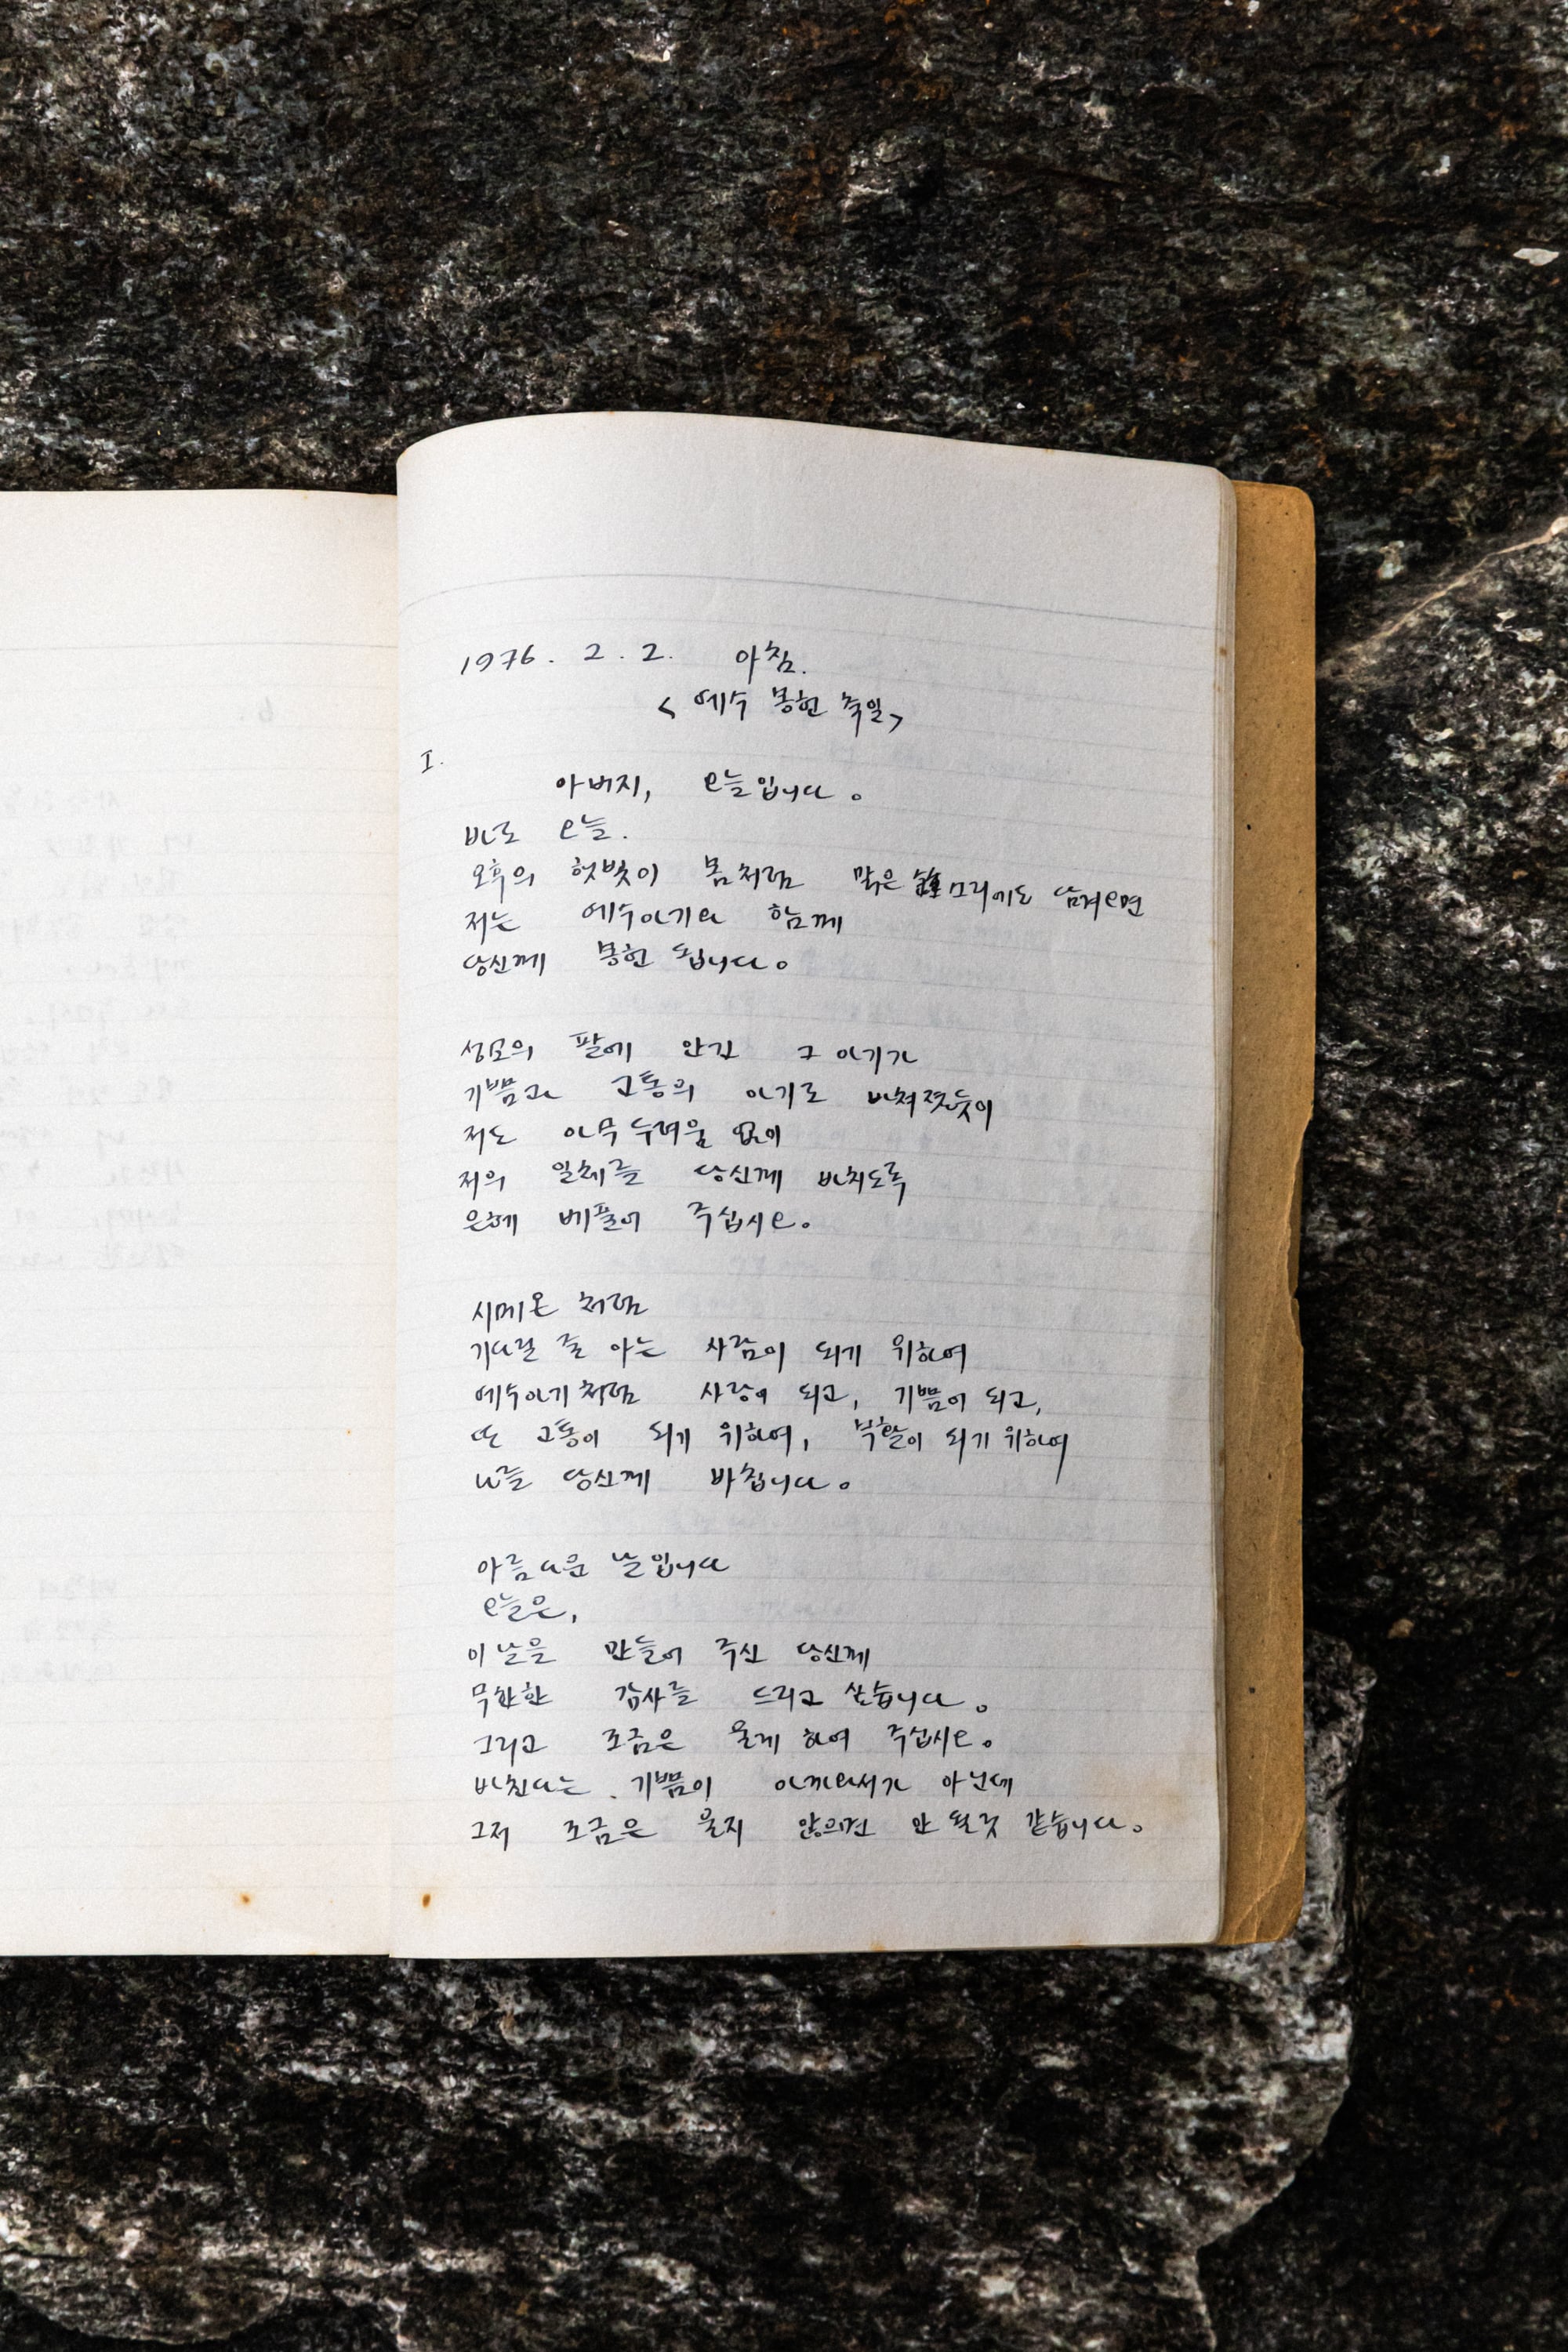 1976. 2. 2. 아침.
< 예수 봉헌 축일>
I.
아버지, 오늘입니다.
바로 오늘.
오후의 햇빛이 봄처럼 맑은 鐘소리에도 담겨오면
저는 예수아기와 함께
당신께 봉헌 됩니다.
성모의 팔에 안긴 그 아기가
기쁨과 고통의 아기로 바쳐졌듯이
저도 아무 두려움 없이
저의 일체를 당신께 바치도록
은혜 베풀어 주십시오.
시메온 처럼
기다릴 줄 아는 사람이 되기 위하여
예수아기처럼 사랑이 되고, 기쁨이 되고,
또 고통이 되기 위하여, 부활이 되기 위하여
나를 당신께 바칩니다.
아름다운 날입니다
오늘은,
이 날을 만들어 주신 당신께
무한한 감사를 드리고 싶습니다.
그리고 조금은 울게 하여 주십시오.
바친다는 기쁨이 아까와서가 아닌데
그저 조금은 울지 않으면 안 될것 같습니다.